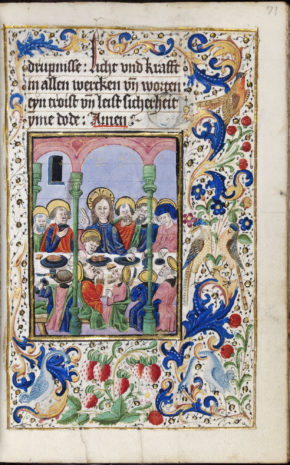 71
drupnisse: licht vnd krafft
in allen wercken vn̄ worten
eyn troist vn̄ leist sicherheit
yme dode: Amen: